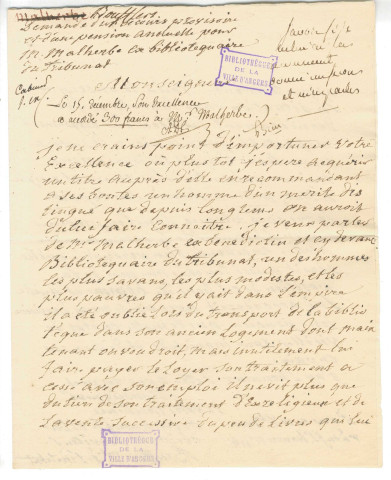 Malherbe Boufflers
Demande d'un secours provisoire
et d'une pension annuelle pour
Mr Malherbe ex bibliotequaire
du Tribunat
BIBLIOTHÈQUE
DE LA
VILLE D'ANGERS
Monseigneur
Le 15. Decembre, Son Excellence
a accordé 300 francs à Mr Malherbe
je ne crains point d'importuner Votre
Excellence ou plus tot j'espere acquerir
un titre auprès d'elle en recommandant
à ses bontés un homme d'un merite dis
tingué que depuis longtems on auroit
du lui faire connaitre. je veux parler
de Mr Malherbe ex benedictin et cy devant
Bibliotequaire du Tribunat, un des hommes
les plus savans, les plus modestes, et les
plus pauvres qu'il y ait dans l'empire
il a été oublié lors du transport de la biblio
teque dans son ancien logement dont main
tenant on voudroit, mais inutilement lui
faire payer le loyer son traitement a
cessé avec son emploi il ne vit plus que
du tiers de son traitement d'ex religieux et de
la vente successive du peu de livres qui lui
BIBLIOTHÈQUE
DE LA
VILLE D'ANGERS